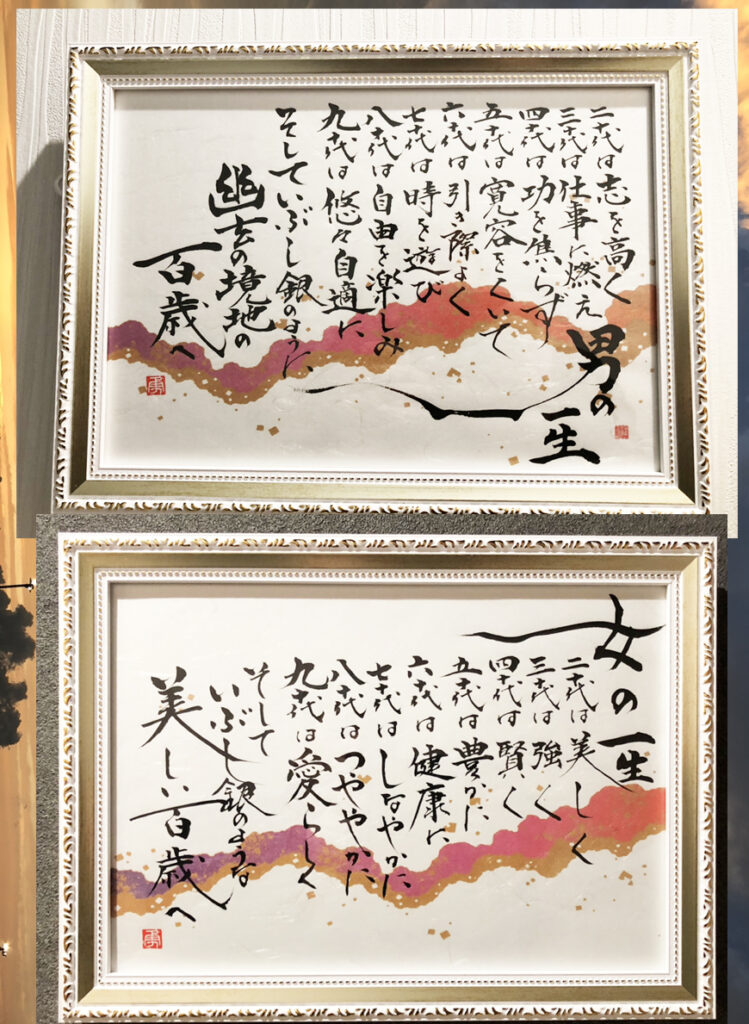 男の
一生
二十代は志を高く
三十代は仕事に燃え
四十代は功を焦らず
五十代は寛容を
六十代は引き際よく
七十代は時を遊び
八十代は自由を楽しみ
九十代は悠々自適に
そしていぶし銀のように
幽玄の境地の
百歳へ
女の一生
二十代は美しく
三十代は強く
四十代は賢く
五十代は豊かに
六十代は健康に
七十代はしなやかに
八十代はつややかに
九十代は愛らしく
そして
いぶし銀のような
美しい百歳へ